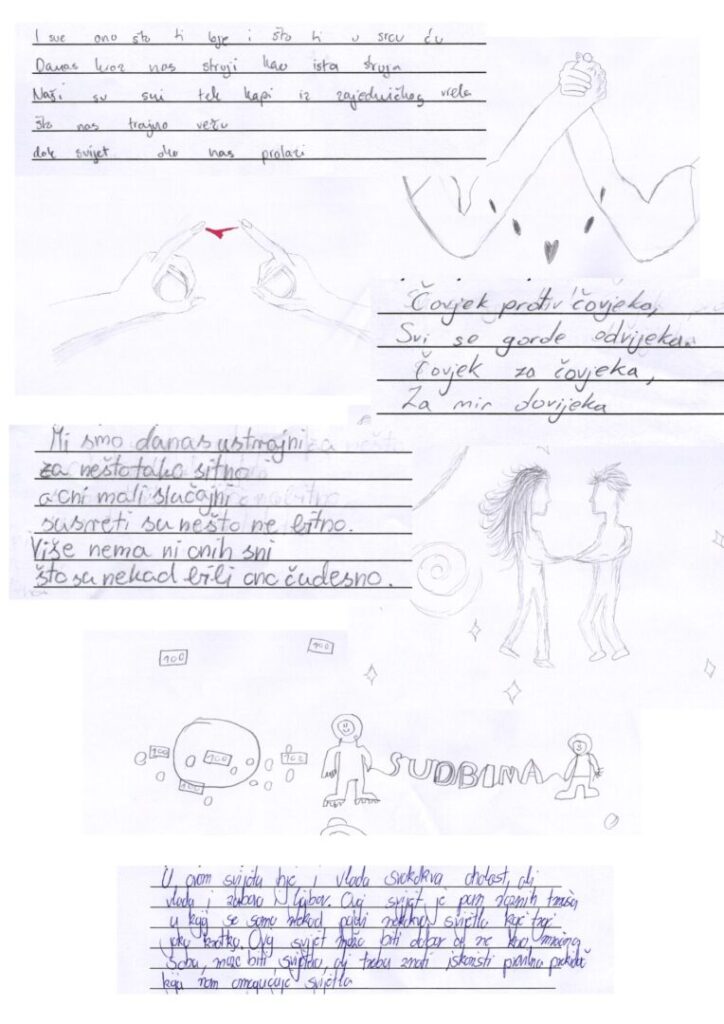 I sve ono što ti je i što ti u srcu
Danas kroz nas struji kao ista struja
Naši su sni tek kapi iz zajedničkog vrela
što nas trajno vežu
dok svijet oko nas prolazi
Čovjek protiv čovjeka,
Svi se gorde odvijeka.
Čovjek za čovjeka,
Za mir dovijeka
Mi smo danas ustrajni
za nešto tako sitno
a oni mali slučajni
susreti su nešto ne bitno.
Više nema ni onih sni
što su nekad bili ono čudesno.
100
100
100 100 100
100
SUDBINA
U ovom svijetu i vlada svakakva ali
vlada i zabava i ljubav. Ovaj svijet je pun raznih
u kojoj se samo nekad pojavi nekakvo svjetlo koje traje
jako kratko. Ovaj svijet može biti dobar al ne kao mračna
soba, može biti svijetao, ali treba znati iskoristi prekidač
koji nam omogućuje svjetlo